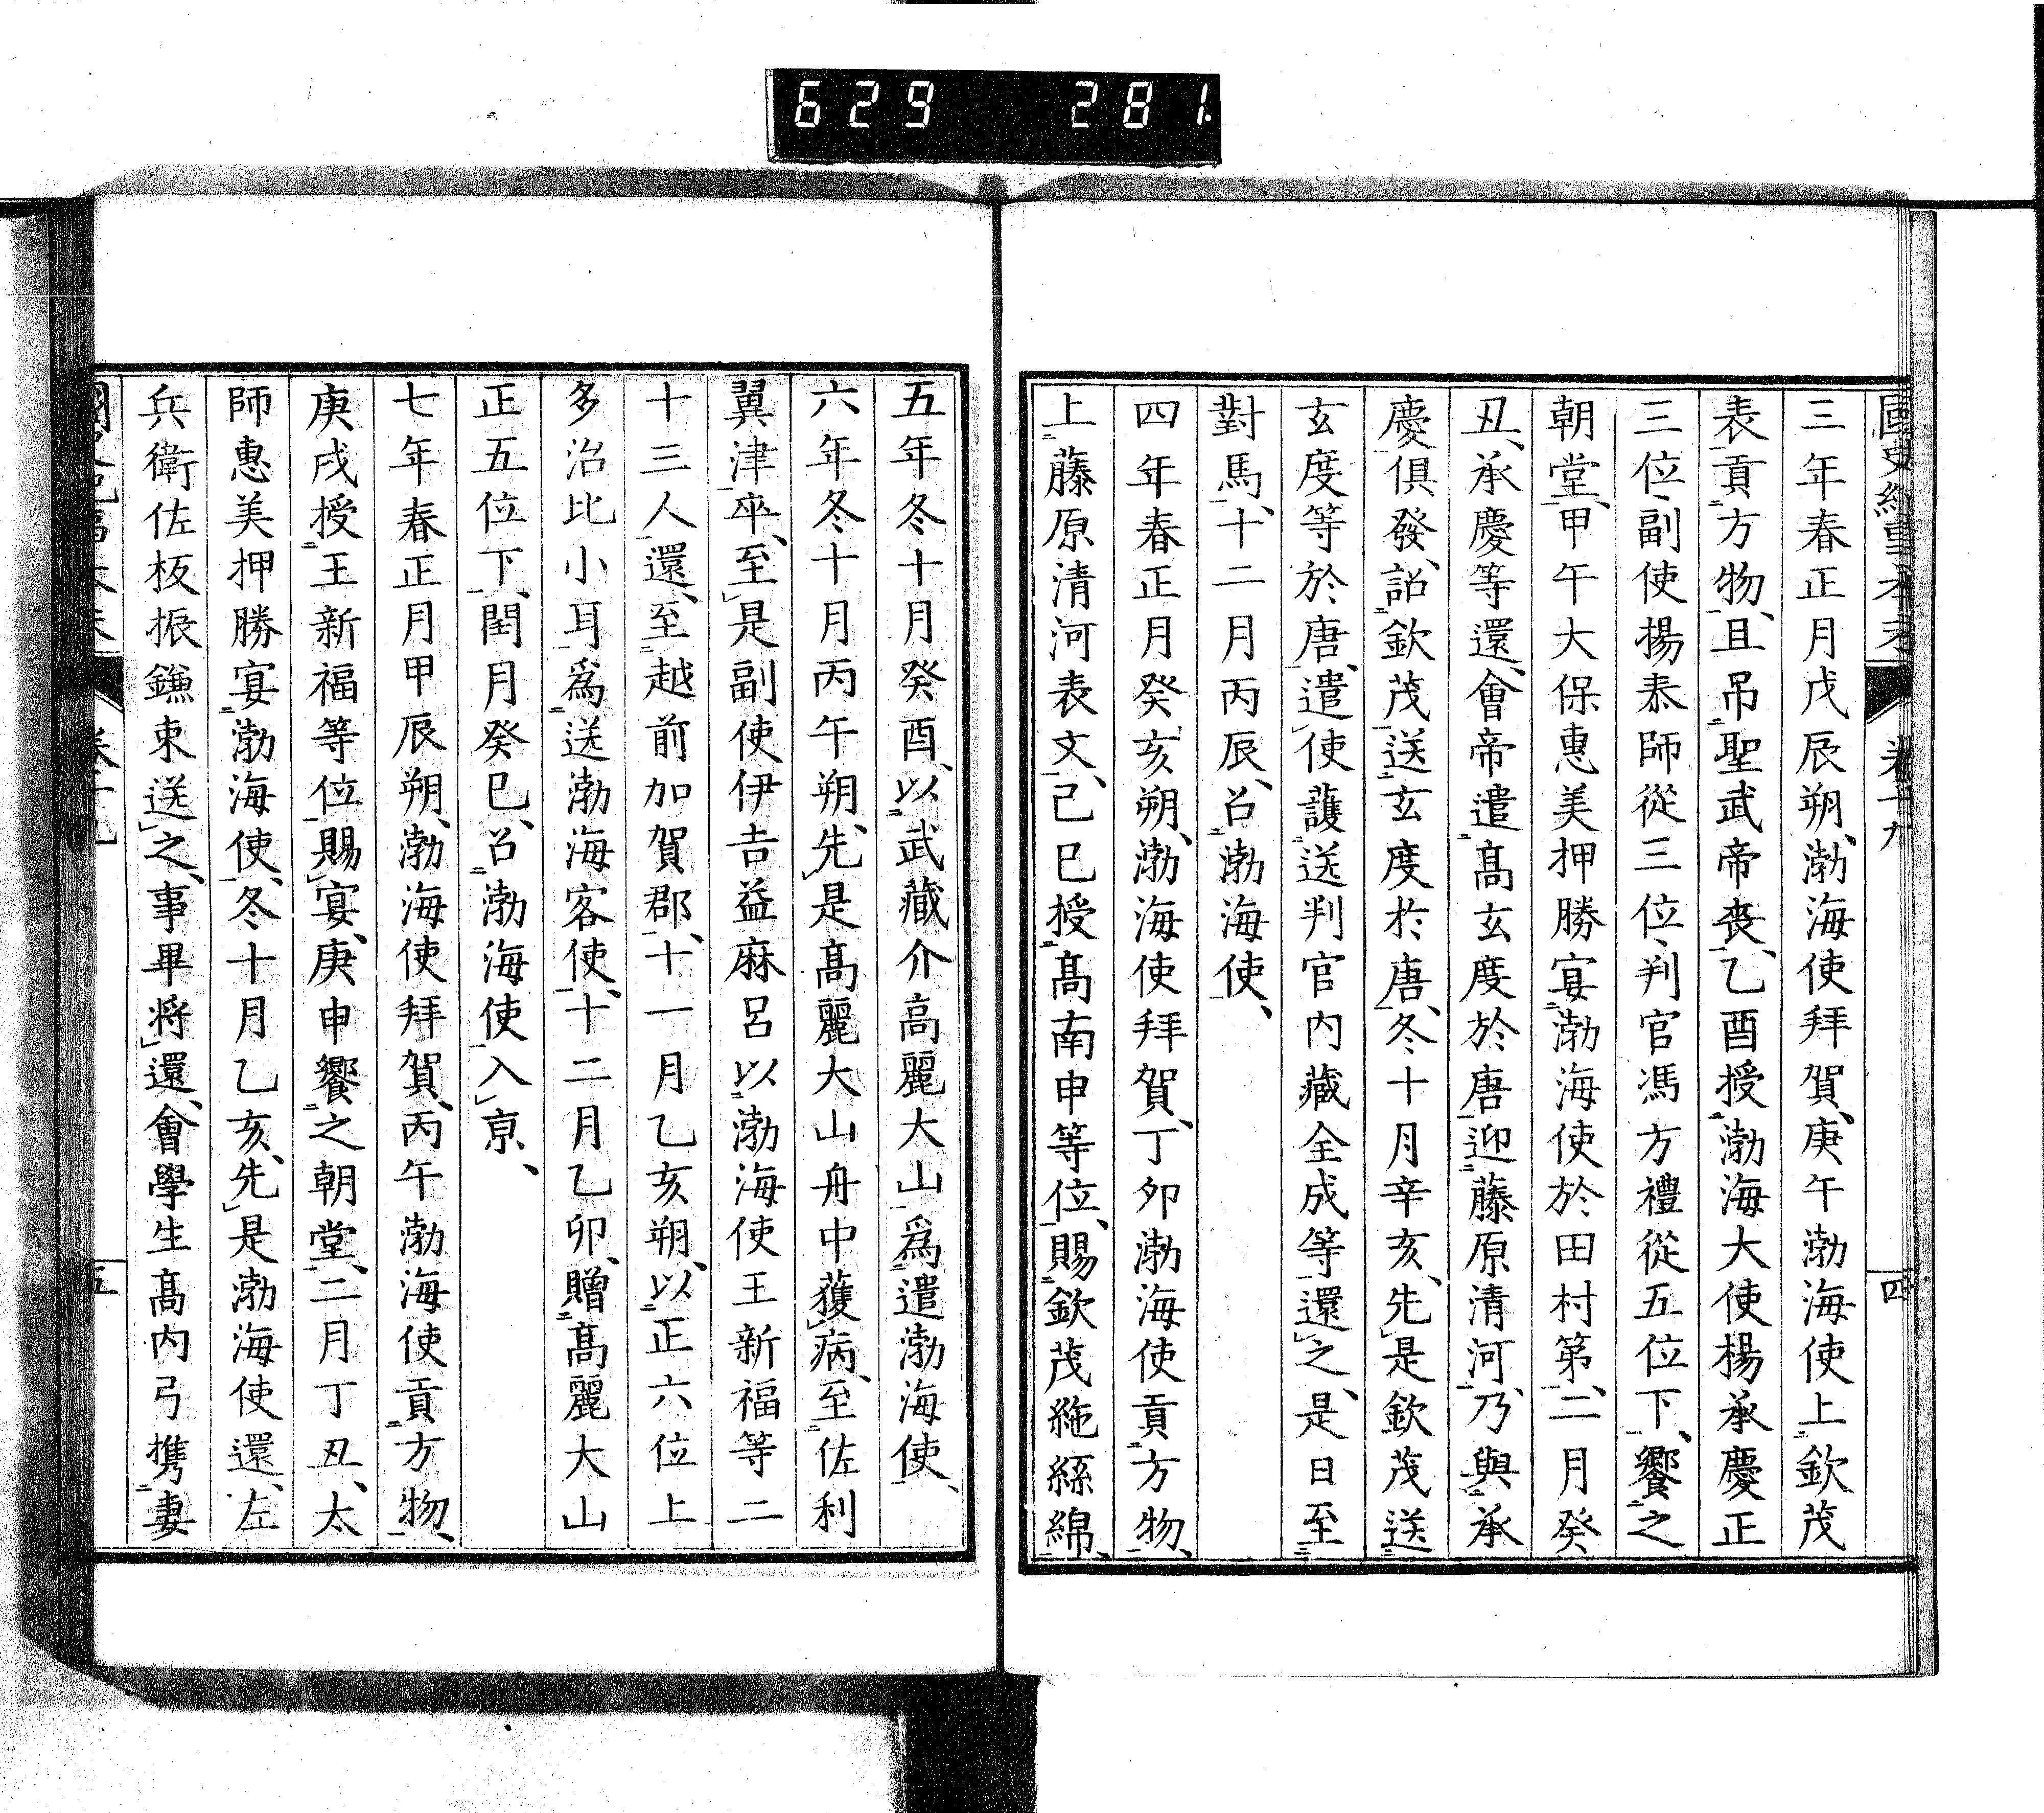 629 281
三年春正月戊辰朔、渤海使拜賀、庚午渤海使上欽茂
表貢方物、且吊聖武帝喪、乙酉授渤海大使楊承慶正
三位、副使揚泰師從三位、判官馮方禮從五位下、饗之
朝堂、甲午大保惠美押勝宴渤海使於田村第、二月癸
丑、承慶等還、會帝遣髙玄度於唐迎藤原清河、乃與承
慶俱發、詔欽茂送玄度於唐、冬十月辛亥、先是欽茂送
玄度等於唐、遣使護送判官内藏全成等還之、是日至
對馬、十二月丙辰、召渤海使、
四年春正月癸亥朔、渤海使拜賀、丁卯渤海使貢方物、
上藤原清河表文、己巳授髙南申等位、賜欽茂絁絲綿、
四
五年冬十月癸酉、以武藏介高麗大山爲遣渤海使、
六年冬十月丙午朔、先是髙麗大山舟中獲病、至佐利
翼津卒、至是副使伊吉益麻呂以渤海使王新福等二
十三人還、至越前加賀郡、十一月乙亥朔、以正六位上
多治比小耳爲送渤海客使、十二月乙卯、贈髙麗大山
正五位下、閏月癸巳、召渤海使入京、
七年春正月甲辰朔、渤海使拜賀、丙午渤海使貢方物、
庚戌授王新福等位賜宴、庚申饗之朝堂、二月丁丑、太
師惠美押勝宴渤海使、冬十月乙亥、先是渤海使還、左
兵衛佐板振鎌束送之、事畢將還、會學生髙内弓攜妻
五